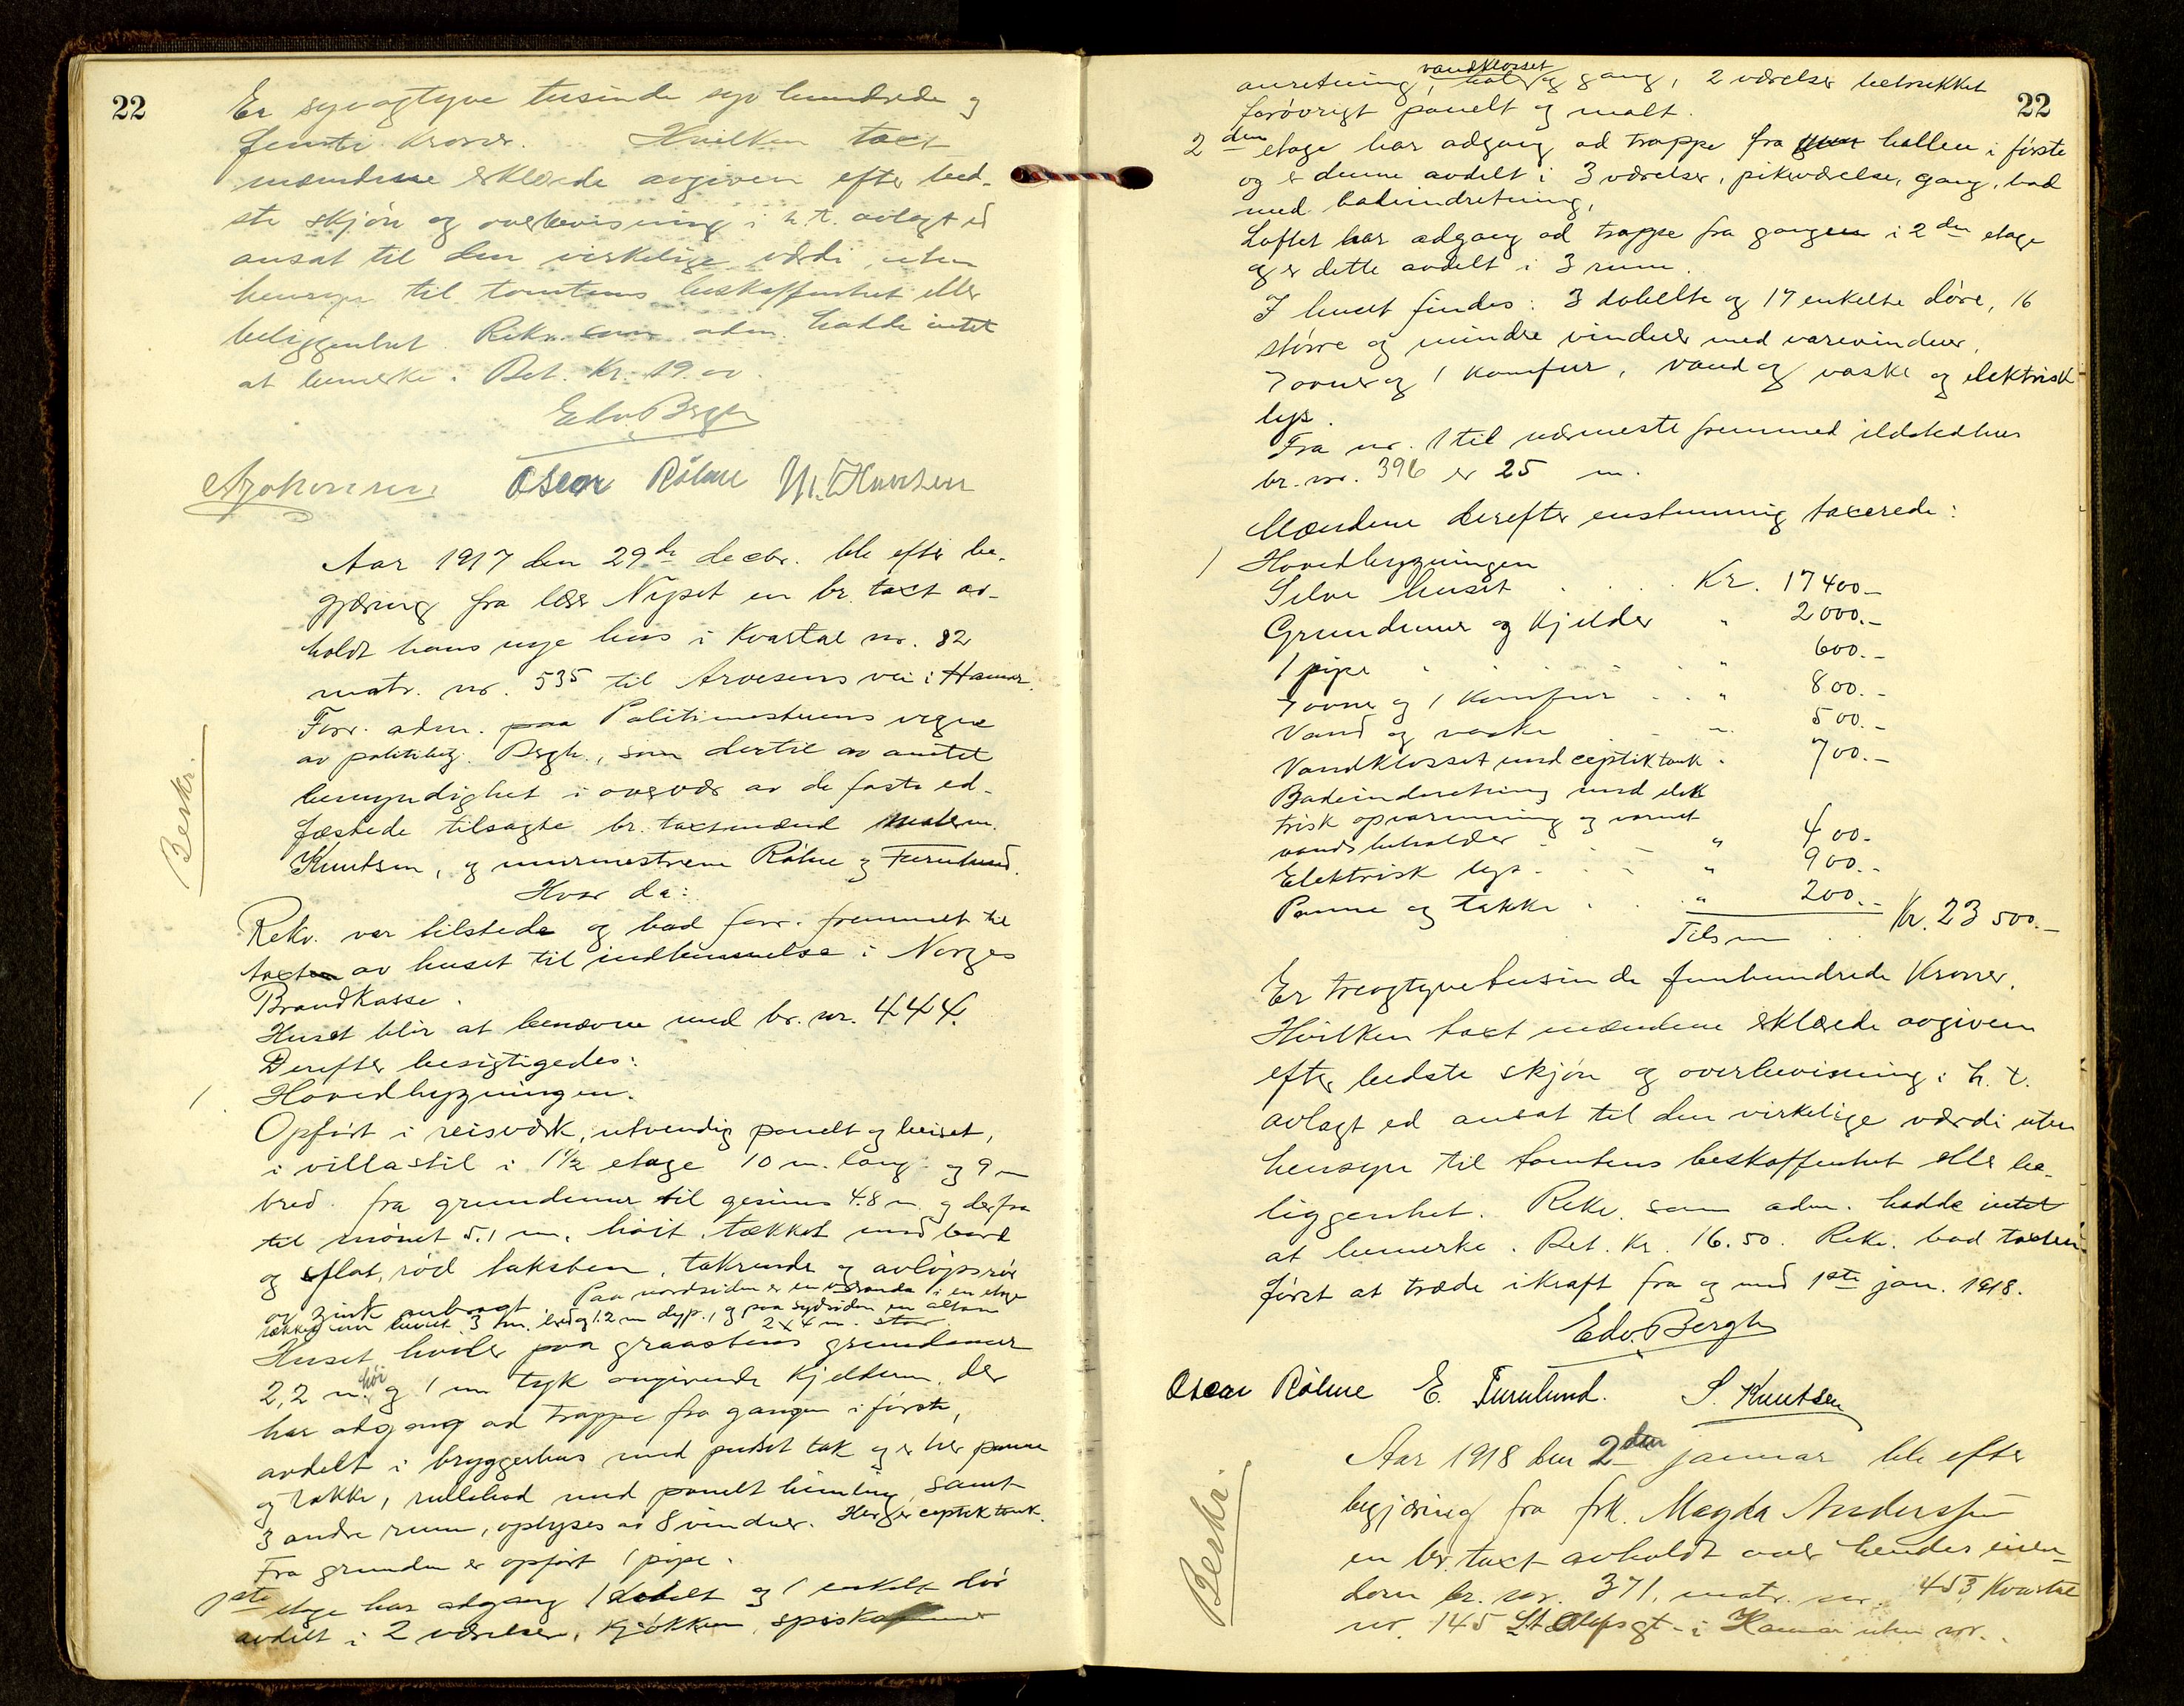 22
Er syvogtyve tusinde syv hundrede og
femti kroner. Hvilken taxt
mændene erklærede avgiven efter bed-
ste skjøn og overbevisning i h. t. avlagt ed
ansat til den virkelige værdi uten
hensyn til tomtens beskaffenhet eller
beliggenhet. Rekv. som adm. hadde intet
at bemerke. Bet. Kr. 19.00.
Edv. Bergh
Oscar Rølme M. Knutsen
Aar 1917 den 29de decbr. ble efter be-
gjæring fra lærer Nipset en br. taxt av-
holdt hans nye hus i Kvartal nr. 82
matr. nr. 535 til Arvesens vei i Hamar.
Forr. adm. paa Politimesterens vegne
av politibetj. Bergh, som dertil av amtet
bemyndighet i overvær av de faste ed-
fæstede tilsagte br. taxtmænd malerm.
Knutsen, og murmestrene Rølme og Furulund.
Hvor da:
Beskr.
Rekv. var tilstede og bad forr. fremmet til
taxten av huset til indlemmelse i Norges
Brandkasse.
Huset blir at benævne med br. nr. 444.
Derefter besigtigedes:
1. Hovedbygningen.
Opført i reisværk, utvendig panelt og beiset,
i villastil i 1 1/2 etage 10 m. lang og 9 m
bred. fra grundmur til gesims 4.8 m. og derfra
til mønet 5.1 m. høit, tækket med bord
og flat, rød taksten, takrende og avløpsrør
av zink anbragt. Paa nordsiden er en veranda i en etage
tækket som huset 3 m. bred og 1.2 m dyp, og paa sydsiden en altan
2 x 4 m. stor.
Huset hviler paa graastens grundmur
2,2 m. høi og 1 m tyk omgivende kjelderen, der
har adgang ad trappe fra gangen i første,
avdelt i bryggerhus med pudset tak og er her panne
og takke, rullebod med panelt himling, samt
3 andre rum, oplyses av 8 vinduer. Her er ceptiktank.
Fra grunden er opført 1 pipe.
1ste etage har adgang 1 dobelt og 1 enkelt dør
avdelt i 2 værelser, kjøkken, spiskammer
22
anretning, vandklosset og gang, 2 værelser betrukket
forøvrigt panelt og malt.
2den etage har adgang ad trappe fra hallen i første
og er denne avdelt i 3 værelser, pikeværelse, gang, bad
med badeindretning,
Loftet har adgang ad trappe fra gangen i 2den etage
og er dette avdelt i 3 rum.
I huset findes: 3 dobelte og 17 enkelte døre, 16
større og mindre vinduer med varevinduer,
7 ovner og 1 komfur, vand og vaske og elektrisk
lys.
Fra nr. 1 til nærmeste fremmed ildstedhus
br. nr. 396 er 25 m.
Mændene derefter enstemmig taxerede:
1 Hovedbygningen
Selve huset . . . Kr. 17400.-
Grundmur og Kjelder " 2000.-
1 pipe . . . . " 600.-
7 ovner og 1 komfur . . " 800.-
Vand og vaske " 500.-
Vandklosset med ceptiktank " 700.-
Badeindretning med elek
trisk opvarmning og varmt
vands beholder . . " 400.-
Elektrisk lys . . . " 900.-
Panne og takke . . " 200.-
Tilsm . . Kr. 23500.-
Er treogtyvetusinde femhundrede Kroner.
Hvilken taxt mændene erklærede avgiven
efter bedste skjøn og overbevisning i h. t.
avlagt ed ansat til den virkelige værdi uten
hensyn til tomtens beskaffenhet eller be-
liggenhet. Rekv. som adm. hadde intet
at bemerke. Bet. Kr. 16.50. Rekv. bad taxten
først at træde ikraft fra og med 1ste jan. 1918.
Edv. Bergh
Oscar Rølme E. Furulund. S. Knutsen
Beskr.
Aar 1918 den 2den januar ble efter
begjæring fra frk. Magda Anderssen
en br. taxt avholdt over hendes eien-
dom br. nr. 371, matr. nr. 453 Kvartal
nr. 145 St. Olafsgt. i Hamar uten nr.